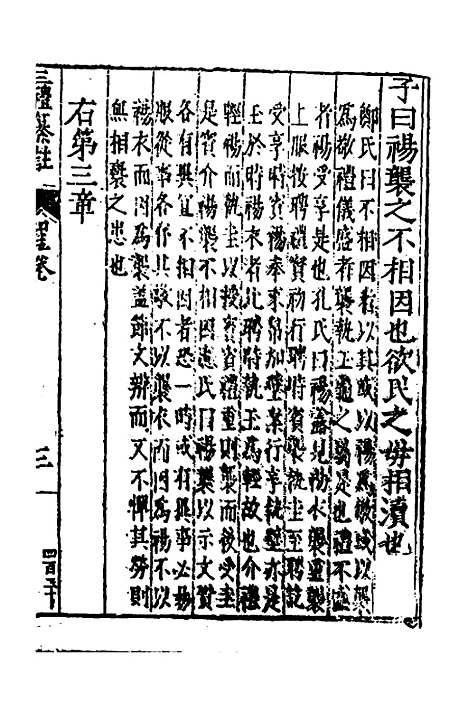 子曰裼襲之不相因也欲民之毋相瀆也
鄭氏曰不相因者以其或以裼爲敬或以襲
爲敬禮儀盛者襲執玉龜之屬是也禮不盛
者裼受享是也孔氏曰裼謂見裼衣襲謂襲
上服按聘禮賓初行聘時賓襲執圭至聘訖
受享時賓裼奉束帛加璧某行享執璧亦是
玉於時裼衣者比聘時執玉爲輕故也介禮
輕裼而執圭以授賓賓禮重則襲而後受圭
是賓介裼襲不相因應氏曰裼襲以示文質
各有異宜不相因者恐一時或有異事必易
服從事各存其敬不以襲衣而因爲裼不以
裼衣而因爲襲蓋節文辨而又不憚其勞則
無相褻之患也
右第三章
三禮纂註
卷
三
四百五十